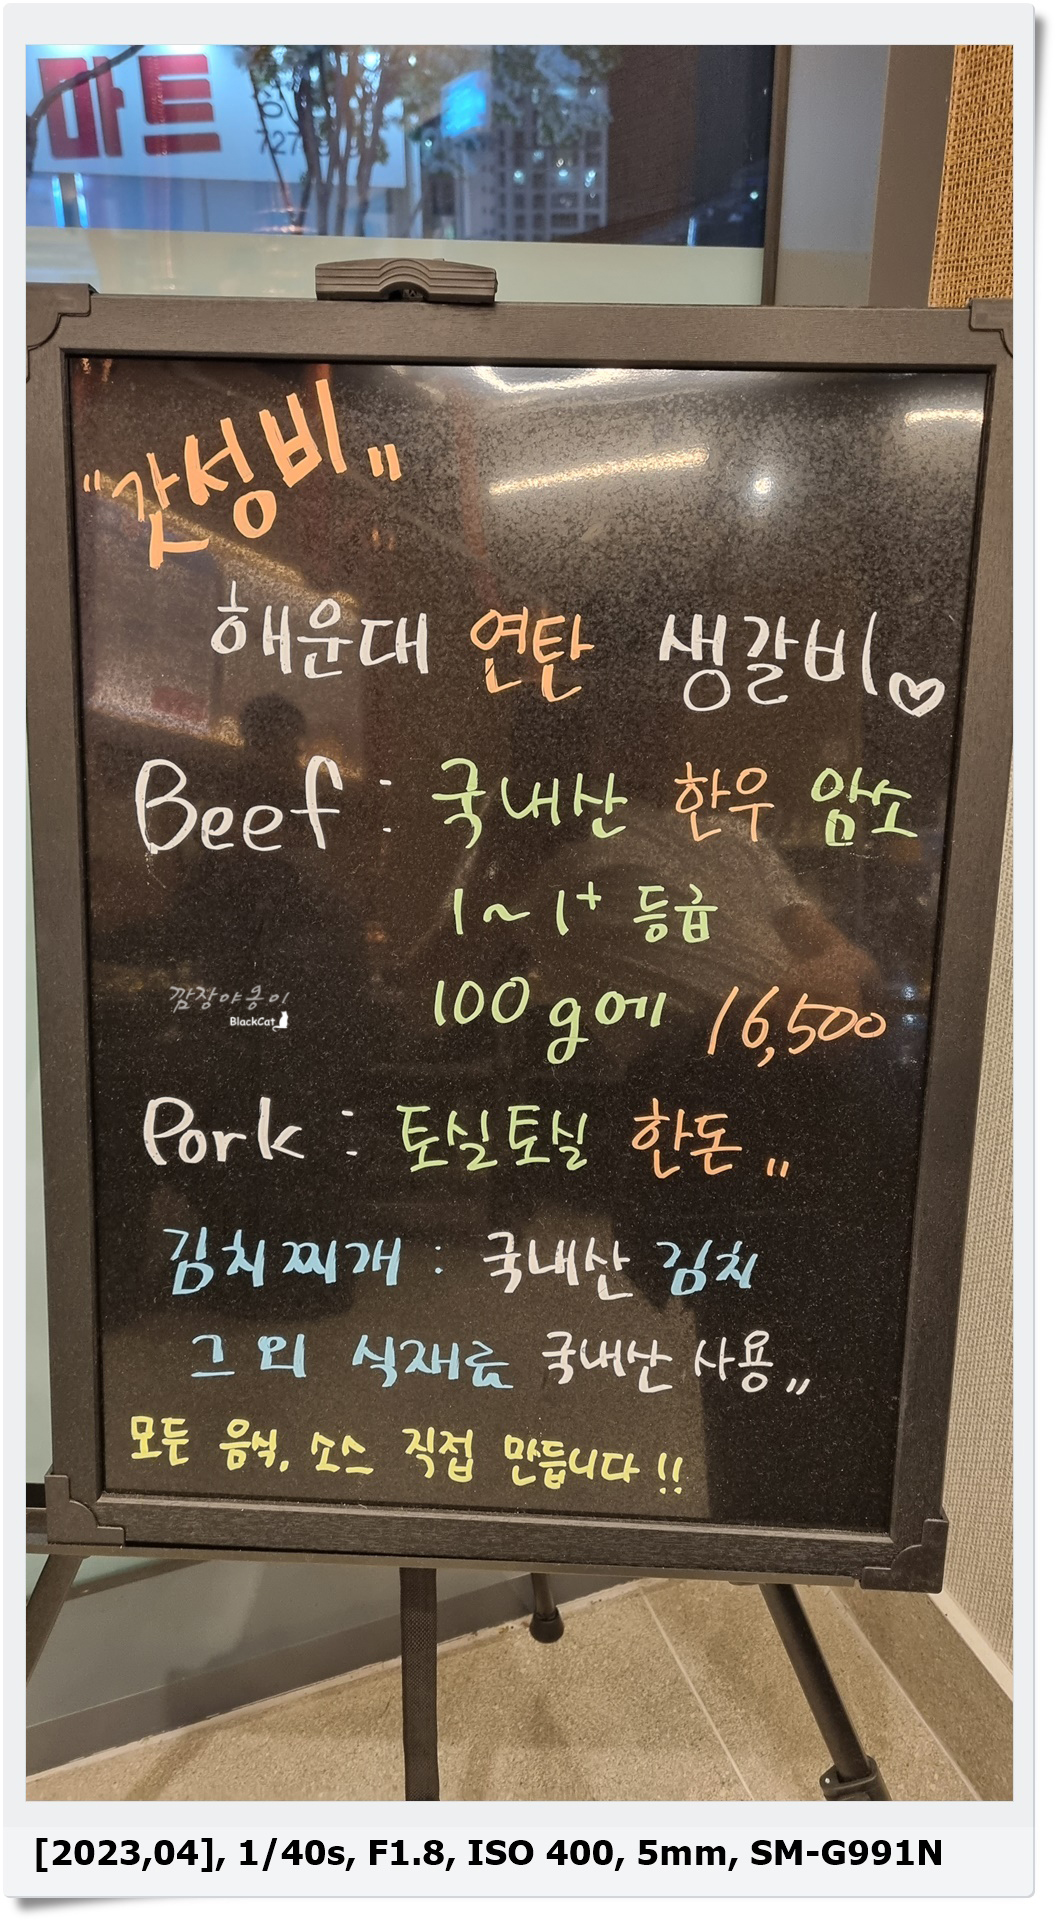 마트
727-9
"갓성비"
해운대 연탄 생갈비♡
Beef : 국내산 한우 암소
1~1+ 등급
100g에 16,500
깜장야옹이
BlackCat
Pork : 토실토실 한돈"
김치찌개 : 국내산 김치
그 외 식재료 국내산 사용"
모든 음식, 소스 직접 만듭니다!!
[2023,04], 1/40s, F1.8, ISO 400, 5mm, SM-G991N